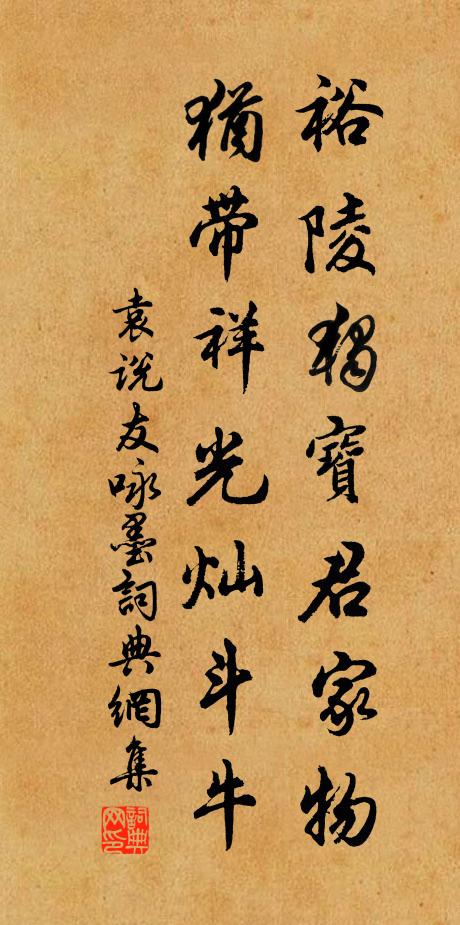 裕陵獨寶君家物
猶带祥光灿斗牛
袁说友咏墨詞典網集
詞典网印